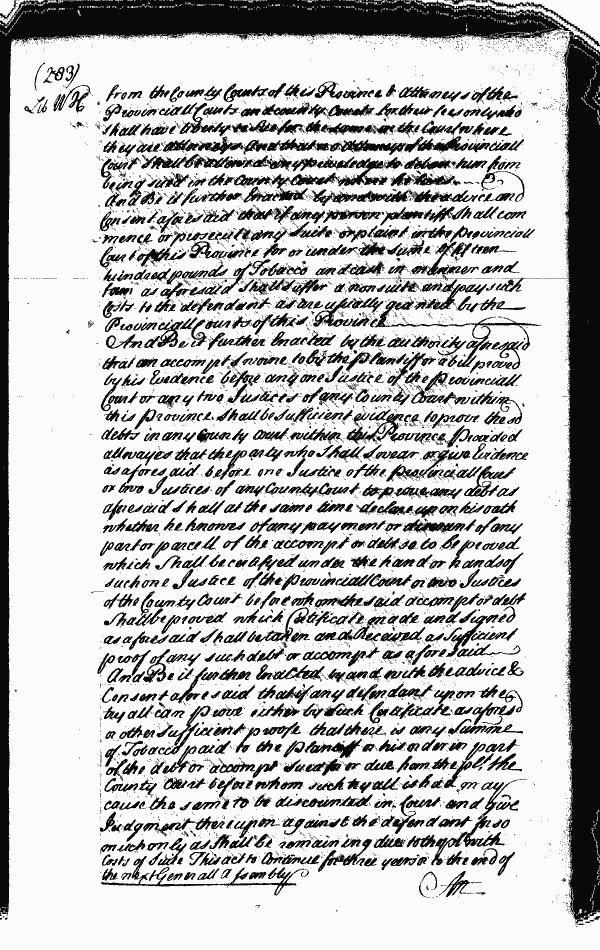 (203)
Lib W H
from the County Courts of this Province & Attorneys of the
Provinciall Courts and county Courts for their fees only who
shall have liberty to sue for the same in the Court where
they are Attorneys And that no Attorney of the Provinciall
Court shall be allowed any priveledge to debarr him from
being sued in the County Court where he lives.
And Be it further Enacted by and with the advice and
Consent aforesaid that if any person plantiff shall com
mence or prosecute any suite or plaint in the Provinciall
Court of this Province for or under the sume of fifteen
hundred pounds of Tobacco and cask in manner and
form as aforesaid shall suffer a nonsuite and pay such
Costs to the defendant as are usually granted by the
Provinciall Courts of this Province
And Be it further Enacted by the authority aforesaid
that an accompt sworne to by the plantiff or a bill proved
by his Evidence before any one Justice of the Provinciall
Court or any two Justices of any County Court within
this Province shall be sufficient evidence to prove the sd
debts in any County Court within this Province Provided
allwayes that the party who shall swear or give Evidence
as aforesaid before one Justice of the provinciall Court
or two Justices of any County Court to prove any debt as
aforesaid shall at the same time declare upon his oath
whether he knowes of any payment or discount of any
part or parcell of the accompt or debt so to be proved
which shall be certifyed under the hand or hands of
such one Justice of the Provinciall Court or two Justices
of the County Court before whom the said accompt or debt
shall be proved which Certificate made and signed
as aforesaid shall be taken and Received as sufficient
proof of any such debt or accompt as aforesaid
And Be it further Enacted by and with the advice &
Consent aforesaid that if any defendant upon the
tryall can prove either by such Certificate as aforesd
or other sufficient proofe that there is any Summe
of Tobacco paid to the plantiff or his order in part
of the debt or accompt sued for or due from the pl. the
County Court before whom such tryall is had may
cause the same to be discounted in Court and give
Judgment thereupon against the defendant for so
much only as shall be remaining due to the pl with
Costs of Suite This act to Continue for three years or to the end of
the next Generall Assembly
An